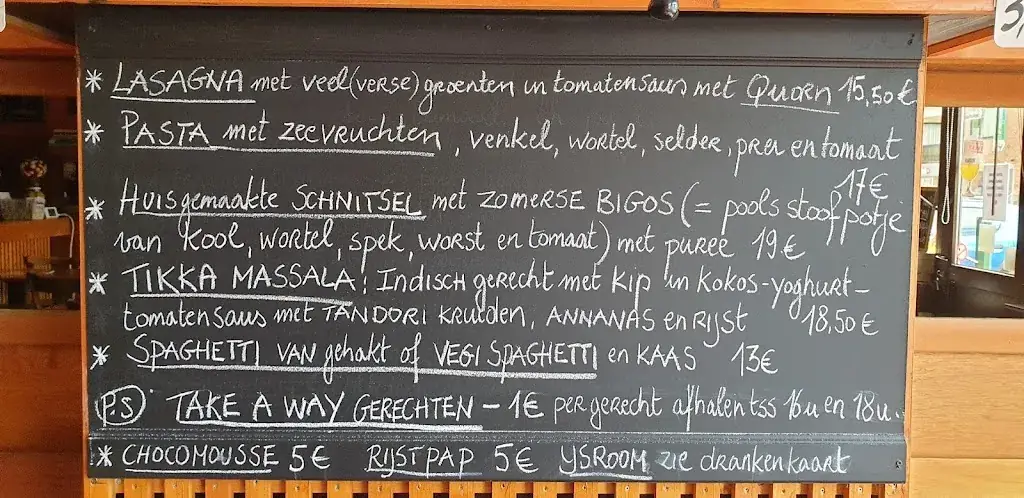 * LASAGNA met veel (verse) groenten in tomatensaus met Quorn 15,50€
* PASTA met zeevruchten, venkel, wortel, selder, prei en tomaat
17€
* Huisgemaakte SCHNITSEL met ZOMERSE BIGOS (= pools stoofpotje
van kool, wortel, spek, worst en tomaat) met puree 19€
* TIKKA MASSALA! Indisch gerecht met kip in kokos-yoghurt-
tomatensaus met TANDORI kruiden, ANNANAS en RIJST 18,50€
* SPAGHETTI VAN gehakt of VEGI SPAGHETTI en KAAS 13€
P.S. TAKE A WAY GERECHTEN - 1€ per gerecht afhalen tss 16u en 18u.
* CHOCOMOUSSE 5€ RIJSTPAP 5€ YSROOM zie drankenkaart